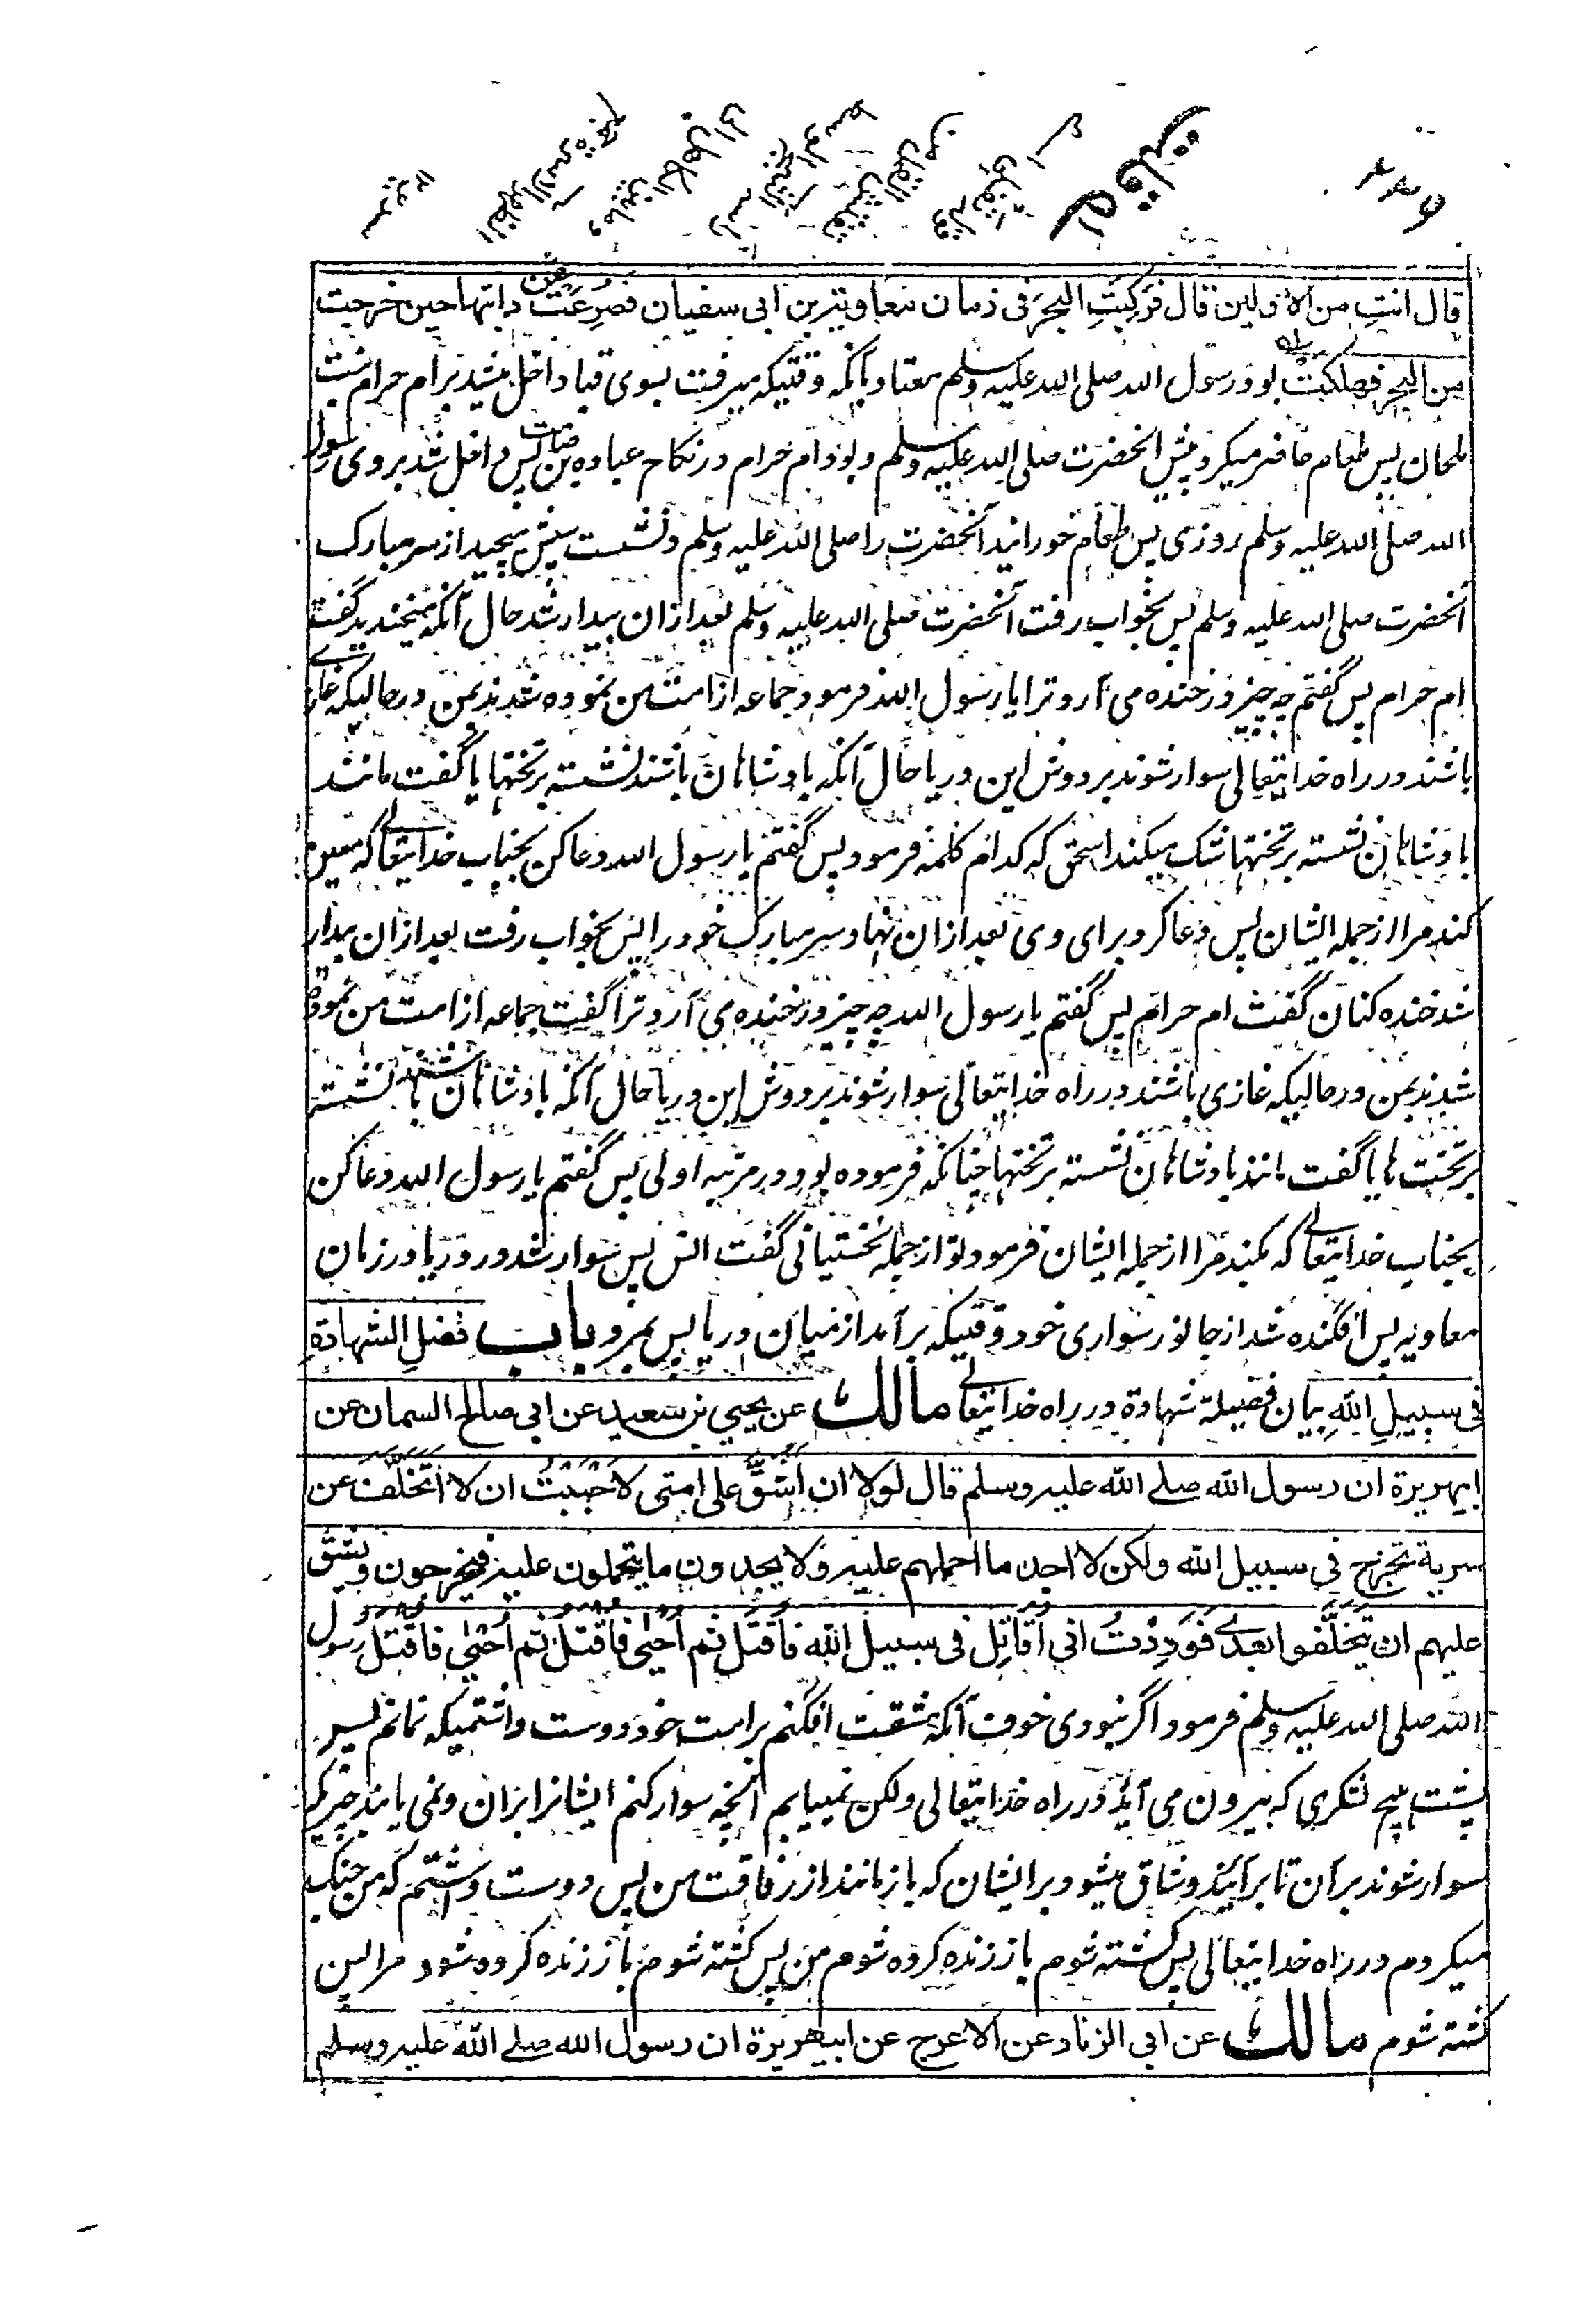 ۲۲۶
قال انتِ من الاولین قال فرَکِبَتِ البحرَ فی زمان معاویة بن ابی سفیان فصُرِعَت عن دابتها حین خرجت
من البحر فهلکت بود رسول الله صلی الله علیه وسلم معتاد بآنکه وقتیکه میرفت بسوی قبا داخل میشد بر ام حرام بنت
ملحان پس طعام حاضر میکرد پیش آنحضرت صلی الله علیه وسلم و بود ام حرام در نکاح عباده بن صامت پس داخل شد بر وی رسول
الله صلی الله علیه وسلم روزی پس طعام خورانید آنحضرت را صلی الله علیه وسلم و نشست سپش میچید از سر مبارک
آنحضرت صلی الله علیه وسلم پس بخواب رفت آنحضرت صلی الله علیه وسلم بعد ازان بیدار شد حال آنکه میخندید گفت
ام حرام پس گفتم چه چیز در خنده می آرد ترا یا رسول الله فرمود جماعه از امت من نموده شدند بمن در حالیکه غازی
باشند در راه خدایتعالی سوار شوند بر دوش این دریا حال آنکه بادشاهان باشند نشسته بر تختها یا گفت مانند
بادشاهان نشسته بر تختها شک میکند اسحق که کدام کلمه فرمود پس گفتم یا رسول الله دعا کن بجناب خدایتعالی که معین
کند مرا از جمله ایشان پس دعا کرد برای وی بعد ازان نهاد سر مبارک خود را پس بخواب رفت بعد ازان بیدار
شد خنده کنان گفت ام حرام پس گفتم یا رسول الله چه چیز در خنده می آرد ترا گفت جماعه از امت من نموده
شدند بمن در حالیکه غازی باشند در راه خدایتعالی سوار شوند بر دوش این دریا حال آنکه بادشاهان باشند نشسته
بر تخت ها یا گفت مانند بادشاهان نشسته بر تختها چنانکه فرموده بود در مرتبه اولی پس گفتم یا رسول الله دعا کن
بجناب خدایتعالی که بکند مرا از جمله ایشان فرمود تو از جمله نخستیانی گفت انس پس سوار شد در دریا در زمان
معاویه پس افگنده شد از جانور سواری خود وقتیکه بر آمد از میان دریا پس بمرد باب فضلِ الشهادةِ
فی سبیلِ اللهِ بیان فضیلة شهادة در راه خدایتعالی مالک عن یحیی بن سعید عن ابی صالح السمان عن
ابیهریرة ان رسول الله صلے الله علیه وسلم قال لولا ان اَشُقَّ علی امتی لاَحْبَبْتُ ان لا اَتخلَّفَ عن
سریة تخرج فی سبیل الله ولکن لا اجد ما احملهم علیه ولا یجدون ما یتحملون علیه فیخرجون ویشق
علیهم ان یَتخلَّفوا بعدی فَوَدِدْتُ انی اُقاتِل فی سبیل الله فاُقتَل ثم اُحیٰی فاُقتل ثم اُحیٰی فاُقتل رسول
الله صلی الله علیه وسلم فرمود اگر نبودی خوف آنکه مشقت افگنم بر امت خود دوست داشتمیکه نمانم پس
پشت هیچ لشکری که بیرون می آید در راه خدایتعالی ولکن نمییابم آنچه سوار کنم ایشانرا بران و نمی یابند چیزیکه
سوار شوند بر آن تا بر آیند و شاق میشود بر ایشان که باز مانند از رفاقت من پس دوست داشتم که من جنگ
میکردم در راه خدایتعالی پس کشته شوم باز زنده کرده شوم من پس کشته شوم باز زنده کرده شود مرا پس
کشته شوم مالک عن ابی الزناد عن الاعرج عن ابیهریرة ان رسول الله صلے الله علیه وسلم